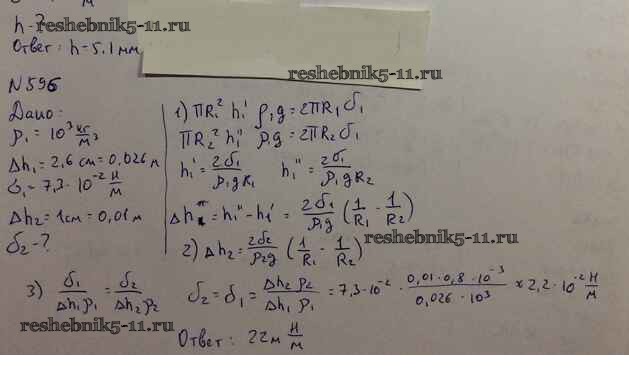 h-?
reshebnik5-11.ru
Ответ: h=5.1 мм
reshebnik5-11.ru
N 596
Дано:
ρ₁ = 10³ кг/м³
Δh₁ = 2,6 см = 0,026 м
σ₁ = 7,3·10⁻² Н/м
Δh₂ = 1 см = 0,01 м
σ₂ - ?
1) πR₁² h₁' ρ₁g = 2πR₁ σ₁
πR₂² h₁'' ρ₁g = 2πR₂ σ₁
h₁' = 2σ₁/ρ₁gR₁ h₁'' = 2σ₁/ρ₁gR₂
Δh = h₁'' - h₁' = 2σ₁/ρ₁g (1/R₁ - 1/R₂)
reshebnik5-11.ru
2) Δh₂ = 2σ₂/ρ₂g (1/R₁ - 1/R₂)
3) σ₁/Δh₁ρ₁ = σ₂/Δh₂ρ₂ σ₂ = σ₁ = Δh₂ ρ₂/Δh₁ ρ₁ = 7,3·10⁻² · 0,01·0,8·10⁻³/0,026·10³ × 2,2·10⁻² Н/м
reshebnik5-11.ru
Ответ: 22м Н/м